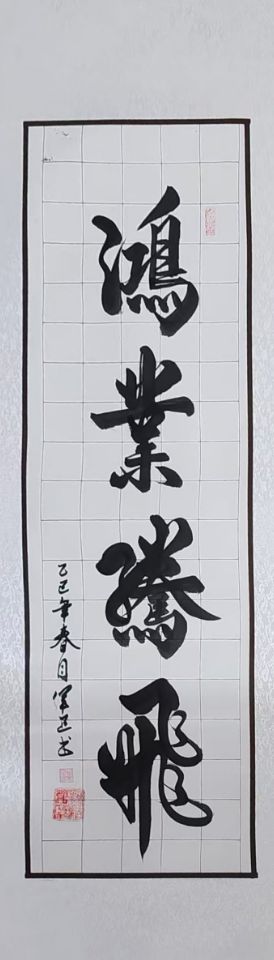 鴻業騰飛
乙巳年春月